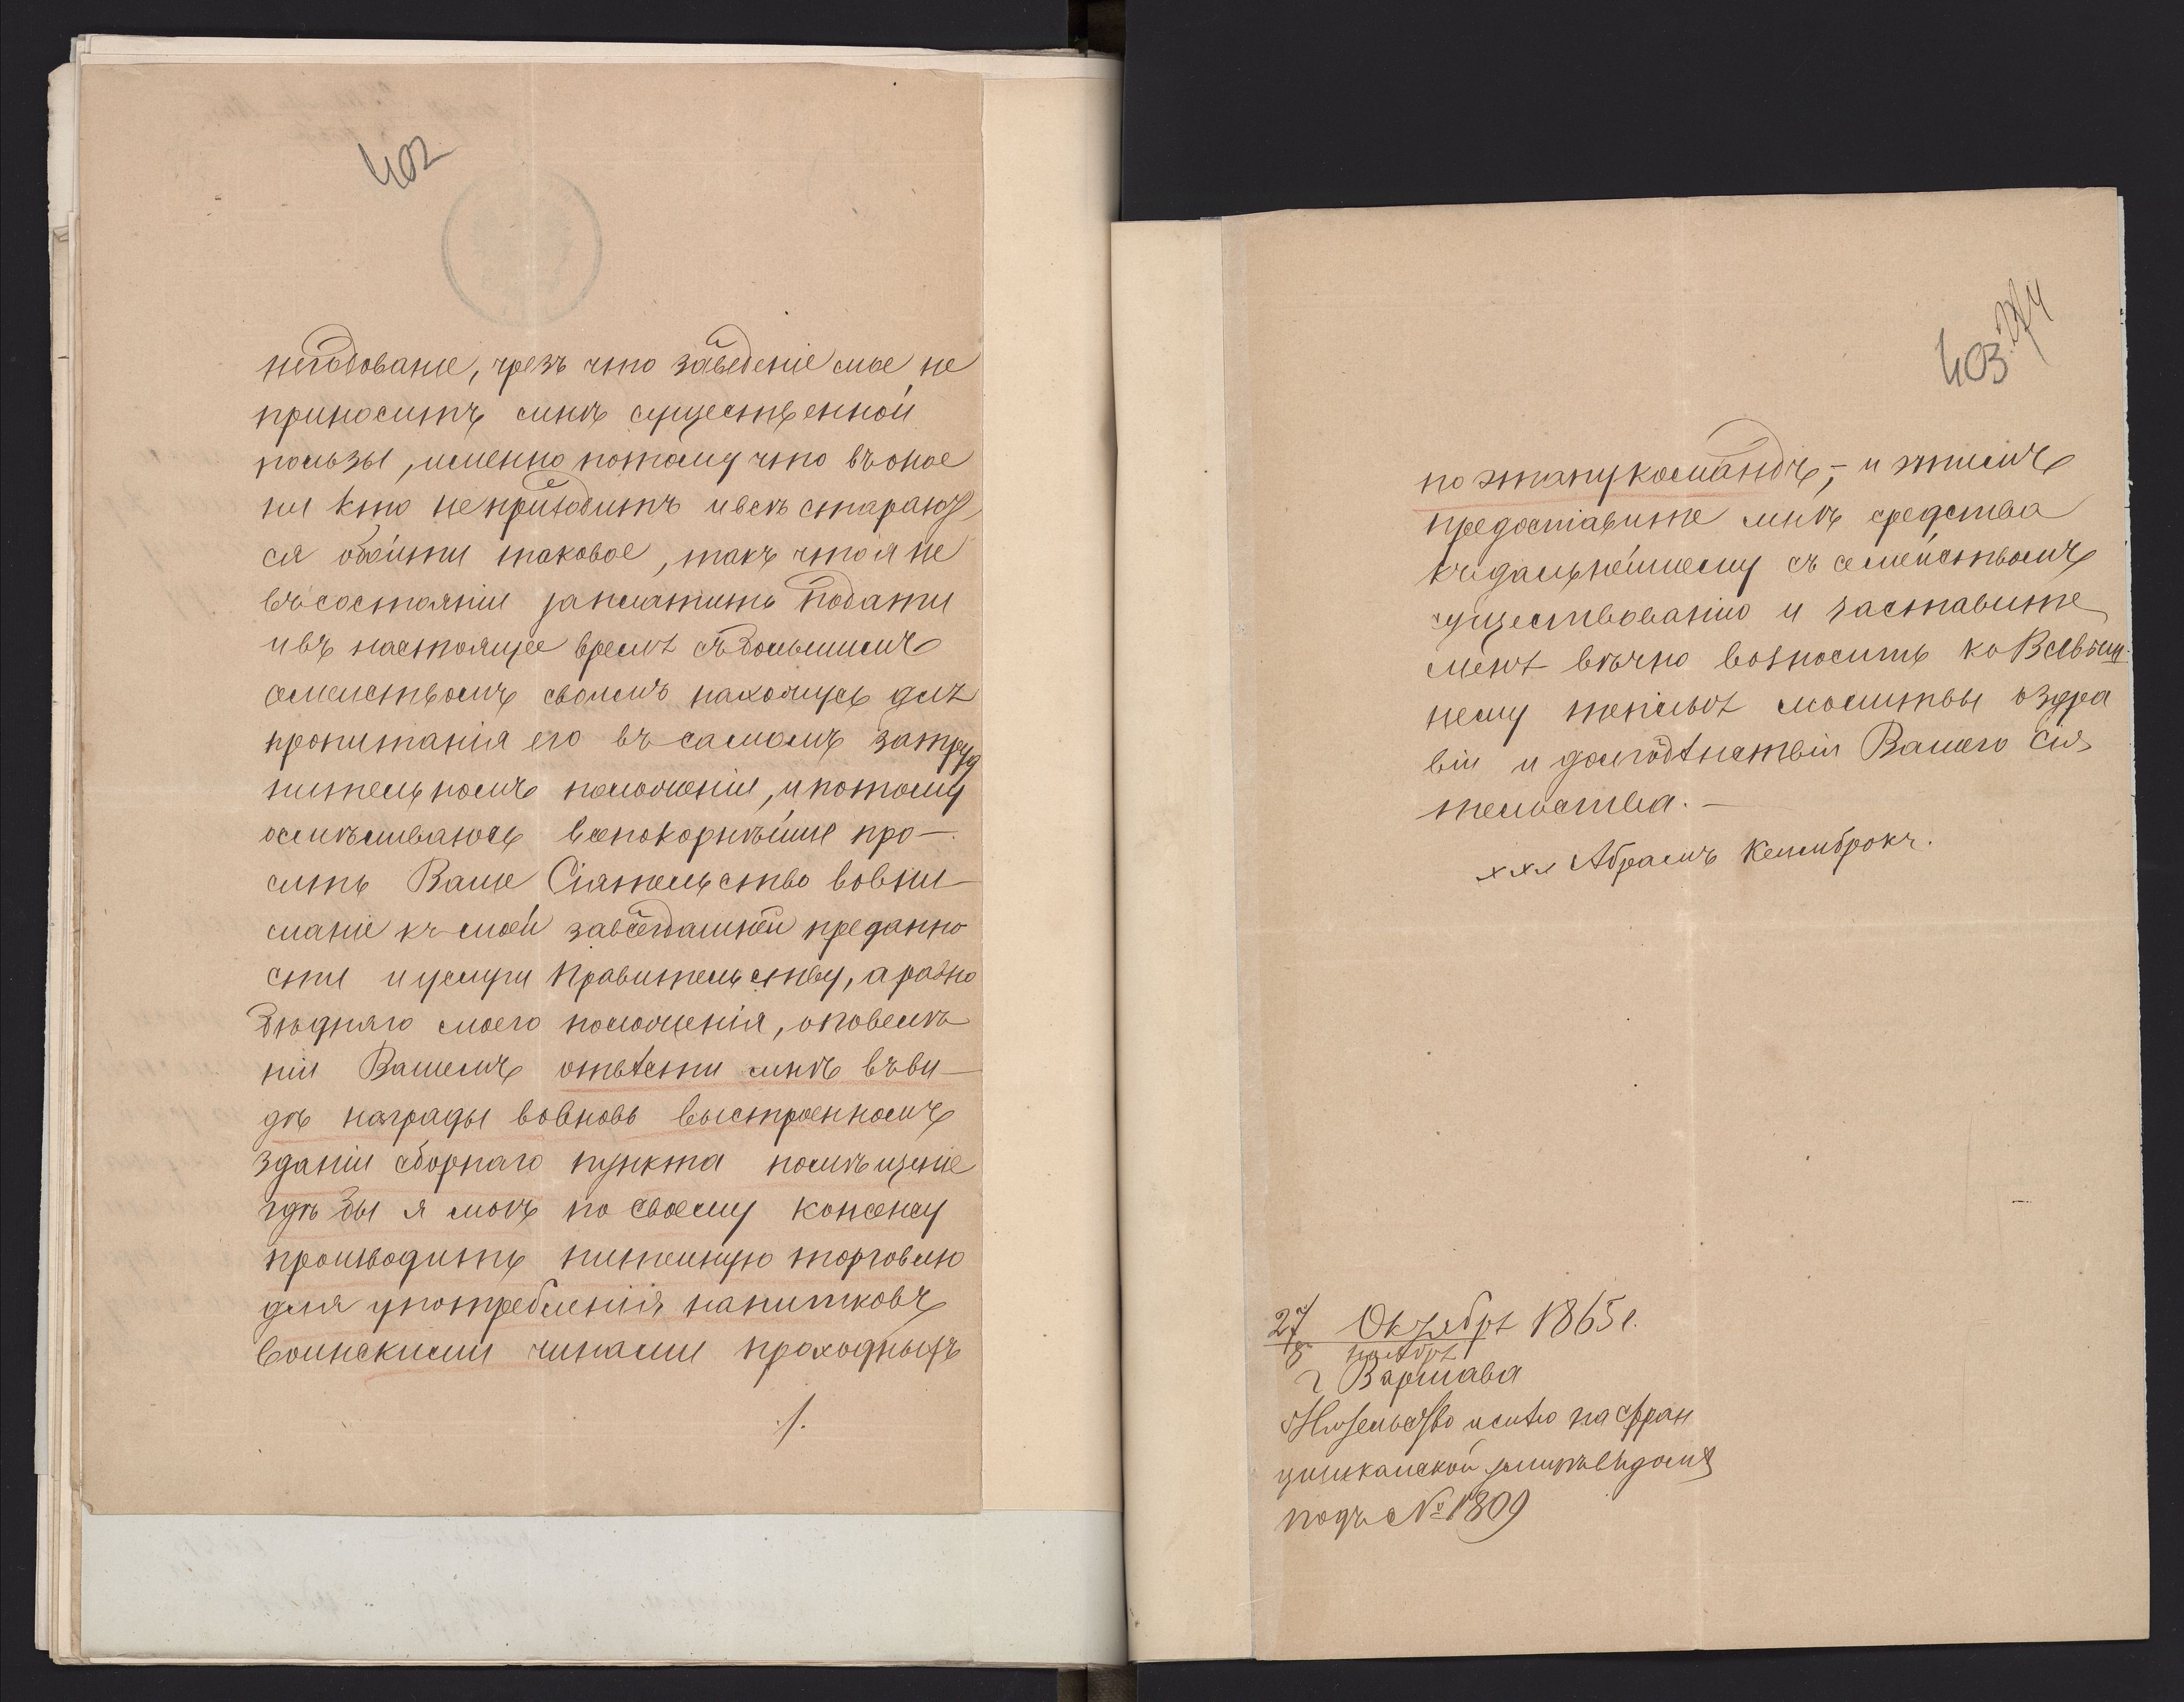 402
негодованіе, чрезъ что заведеніе мое не
приноситъ мнѣ существенной
пользы, именно потому что въ оное
ни кто не приходитъ и всѣ старают,
ся обойти таковое, такъ что я не
въ состояніи заплатить подати
и въ настоящее время съ большимъ
семействомъ своимъ нахожусь для
пропитанія его въ самомъ затруд
нительномъ положеніи, и потому
осмѣливаюсь всепокорнѣйше про-
сить Ваше Сіятельство вовни-
маніе къ моей завсегдашней преданно
сти и услуги Правительству, а равно
бѣднаго моего положенія, о повелѣ
ніи Вашемъ отвѣсти мнѣ въ ви-
дѣ награды вовновь выстроенномъ
зданіи сборнаго пункта помѣщеніе
гдѣ бы я могъ по своему консенсу
производить питейную торговлю
для употребленія напитковъ
воинскими чинами проходныхъ
./.
403
по этапу командъ, - и этимъ
предоставите мнѣ средства
къ дальнейшему съ семействомъ
существованію и заставите
меня вѣчно возносить ко Всевыш-
нему теплыя молитвы о здра
віи и долгоденствіи Вашего Сія,
тельства. -
xxx Абрамъ Кельмброкъ.
27 Октября 1865 г.
8 ноября
г Варшава
Жительство имѣю на Фран
цишканской улицѣ въ домѣ
подъ № 1809